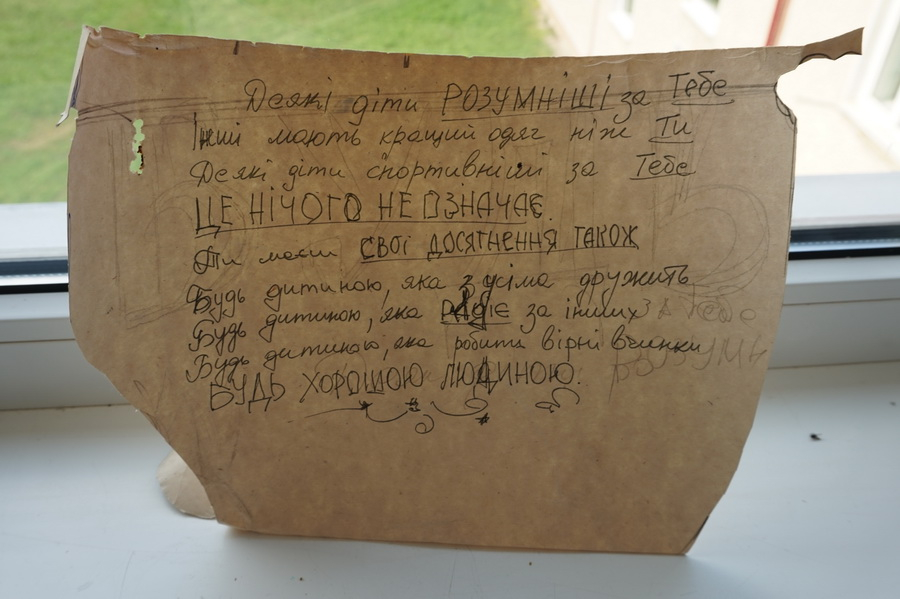 Деякі діти РОЗУМНІШІ за Тебе
Інші мають кращий одяг ніж Ти
Деякі діти спортивніші за Тебе
ЦЕ НІЧОГО НЕ ОЗНАЧАЄ.
Ти маєш СВОЇ ДОСЯГНЕННЯ ТАКОЖ
Будь дитиною, яка з усіма дружить
Будь дитиною, яка РАДІЄ за інших
Будь дитиною, яка робить вірні вчинки
БУДЬ ХОРОШОЮ ЛЮДИНОЮ.
за Тебе